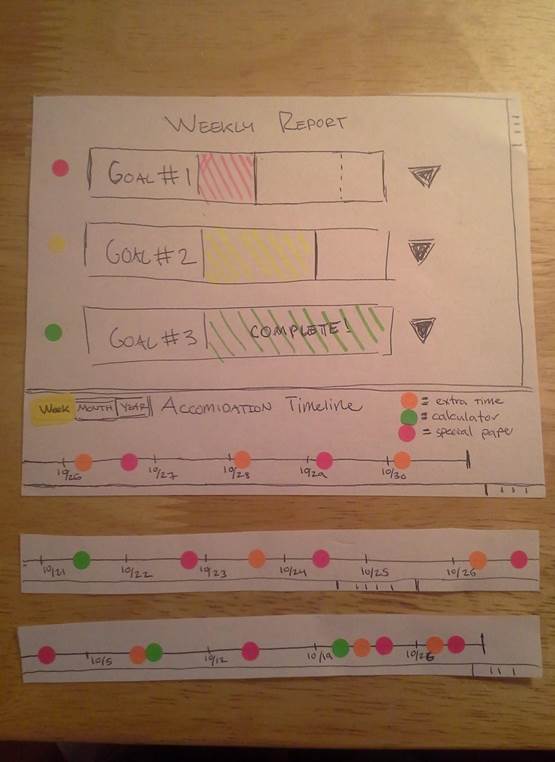 WEEKLY REPORT
GOAL #1
GOAL #2
GOAL #3 COMPLETE!
WEEK MONTH YEAR ACCOMIDATION TIMELINE
= extra time
= calculator
= special paper
10/26 10/27 10/28 10/29 10/30
10/21 10/22 10/23 10/24 10/25 10/26
10/5 10/12 10/19 10/26